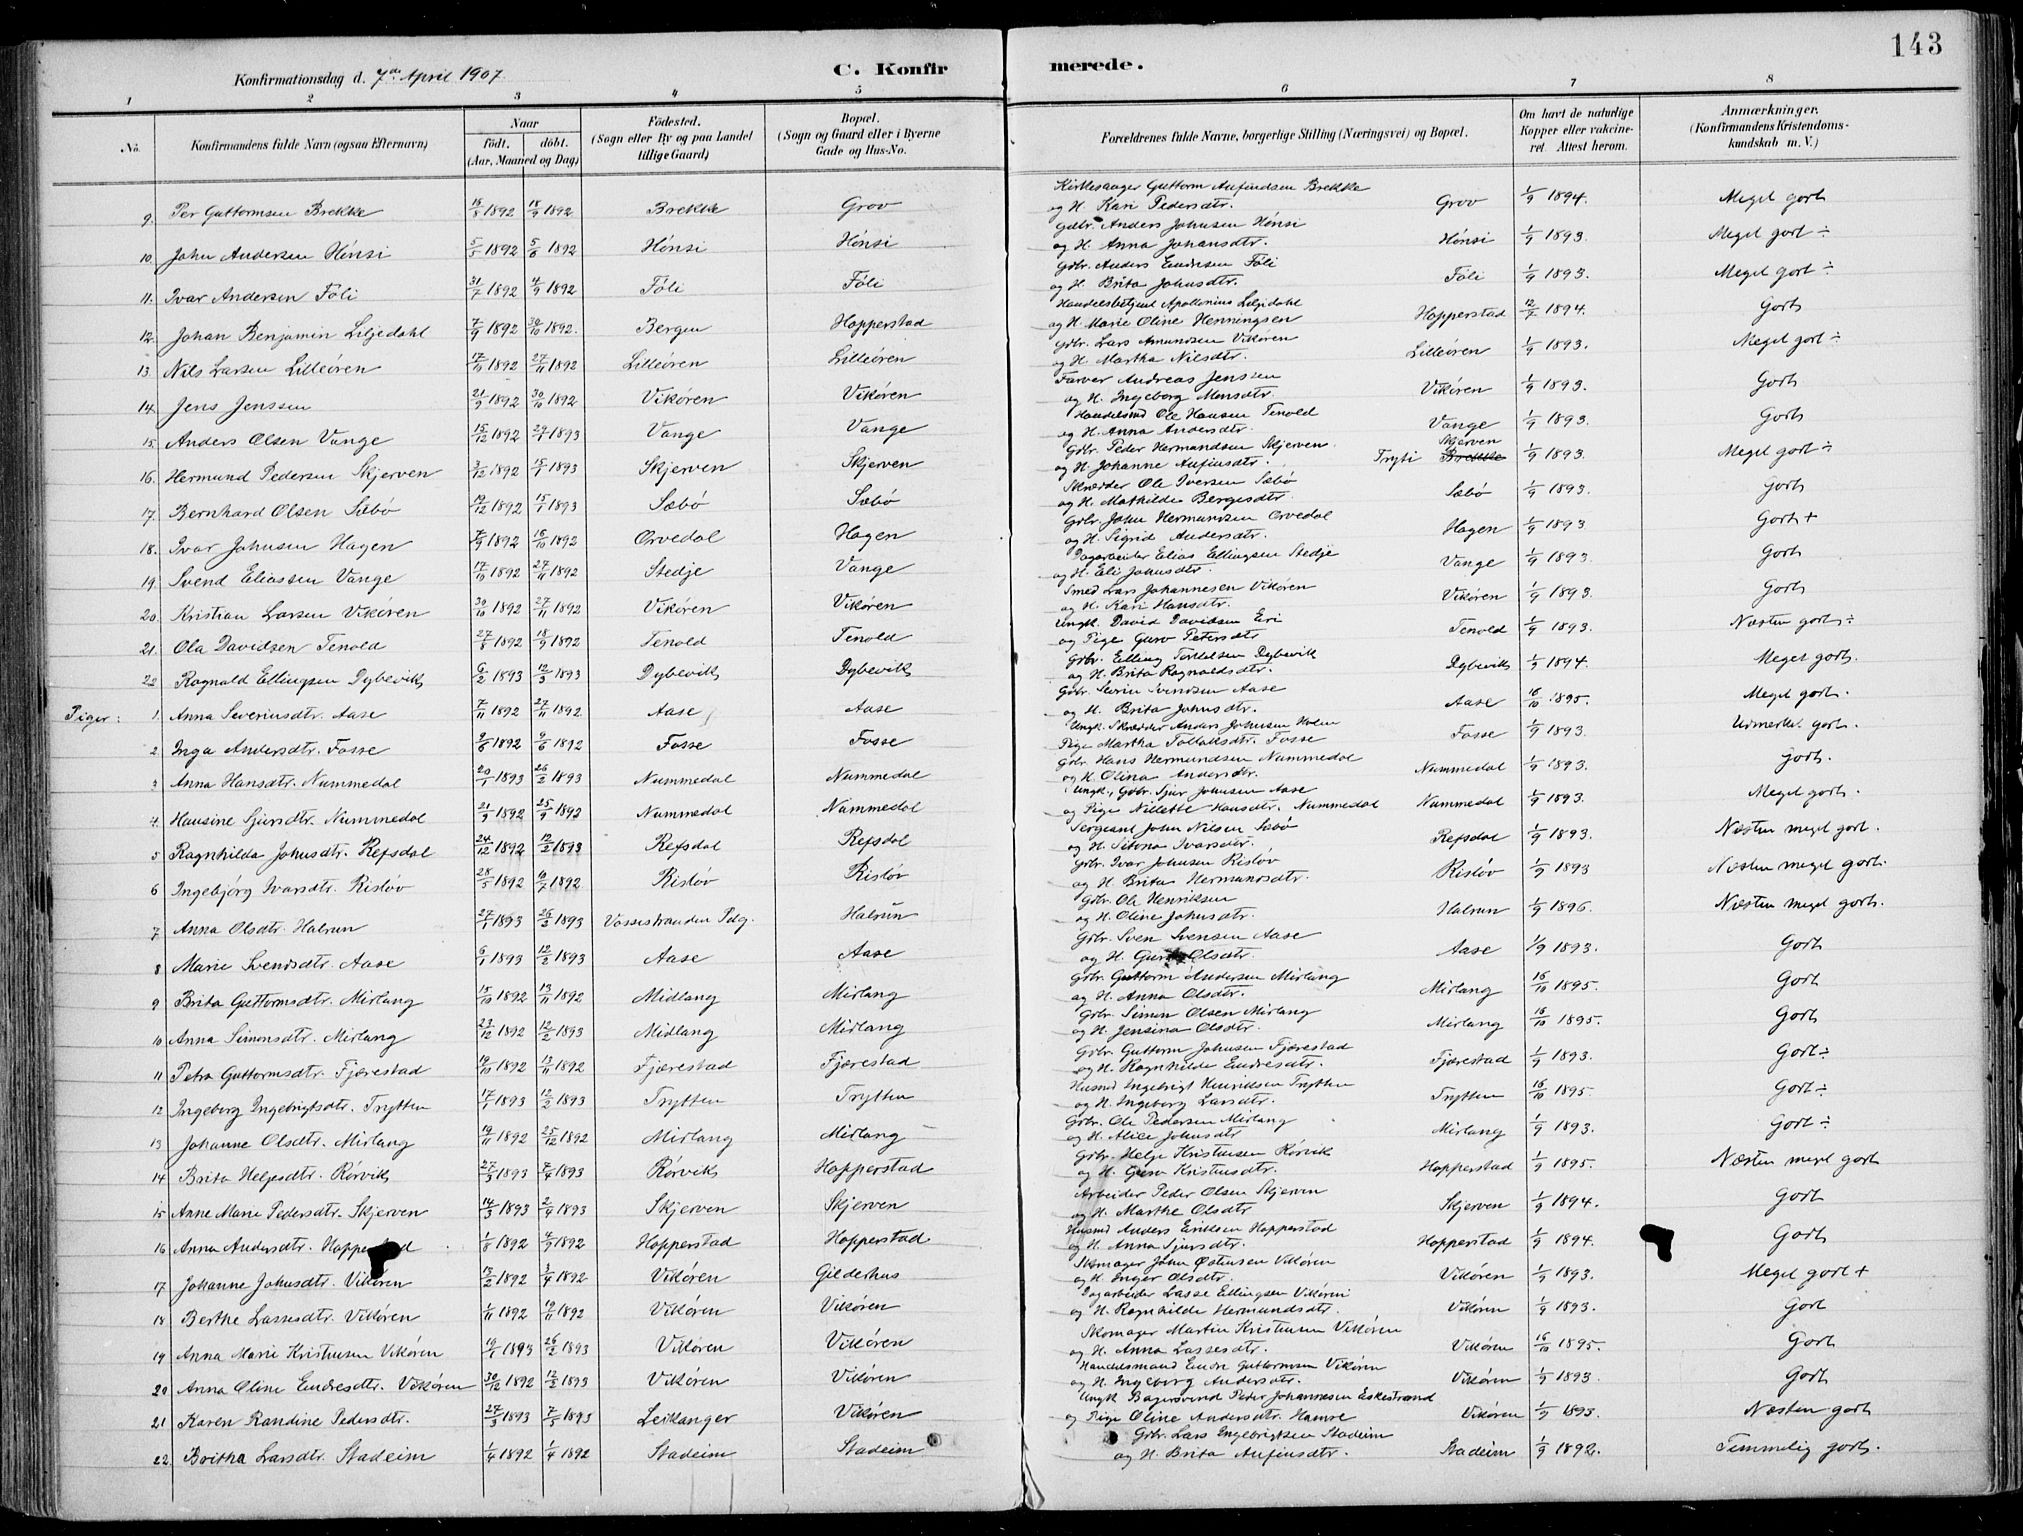 143
Konfirmationsdag d. 7de April 1907
C. Konfirmerede.
1 2 3 4 5 6 7 8
No. Konfirmandens fulde Navn (ogsaa Efternavn) Naar födt. döbt. (Aar, Maaned og Dag) Födested. (Sogn eller By og paa Landet tillige Gaard) Bopæl. (Sogn og Gaard eller i Byerne Gade og Hus-No. Forældrenes fulde Navne, borgerlige Stilling (Næringsvei) og Bopæl. Om havt de naturlige Kopper eller vaccineret. Attest herom. Anmærkninger. (Konfirmandens Kristendomskundskab m. V.)
9. Per Guttormsen Brekke 16/8 1892 18/9 1892 Brekke Grov Kirkesanger Guttorm Anfindsen Brekke og H. Kari Pedersdtr. Grov 1/9 1894. Meget godt
10. John Andersen Hönsi 5/5 1892 5/6 1892 Hönsi Hönsi Gdbr. Anders Johnsen Hönsi og H. Anna Johansdtr. Hönsi 1/9 1893. Meget godt ÷
11. Ivar Andersen Föli 31/7 1892 4/9 1892 Föli Föli Gdbr. Anders Endresen Föli og H. Brita Johnsdtr. Föli 1/9 1893. Meget godt ÷
12. Johan Benjamin Liljedahl 7/9 1892 30/10 1892. Bergen Hopperstad Handelsbetjent Apollonius Liljedahl og H. Marie Oline Henningsen Hopperstad 12/7 1894. Godt
13. Nils Larsen Lilleören 17/10 1892 27/11 1892 Lilleören Lilleören Gdbr. Lars Amundsen Vikören og H. Martha Nilsdtr. Lilleören 1/9 1893. Meget godt ÷
14. Jens Jenssen 21/9 1892 30/10 1892 Vikören Vikören Farver Andreas Jenssen og H. Ingeborg Monsdtr. Vikören 1/9 1893. Godt
15. Anders Olsen Vange 15/12 1892 29/1 1893 Vange Vange Handelsmd Ole Hansen Tenold og H. Anna Andersdtr. Vange 1/9 1893. Godt
16. Hermund Pedersen Skjerven 3/12 1892 15/1 1893 Skjerven Skjerven Gdbr. Peder Hermandsen Skjerven. og H. Johanne Anfinsdtr. Tryti Brekke Skjerven 1/9 1893. Meget godt ÷
17. Bernhard Olsen Sæbö 19/12 1892 15/1 1893 Sæbö Sæbö Skrædder Ole Iversen Sæbö og H. Mathilde Bergesdtr. Sæbö 1/9 1893. Godt
18. Ivar Johnsen Hagen 7/9 1892 16/10 1892 Orvedal Hagen Gdbr. John Hermundsen Orvedal og H. Sigrid Andersdtr. Hagen 1/9 1893 Godt +
19. Svend Eliassen Vange 17/10 1892 27/11 1892 Stedje Vange Dagarbeider Elias Ellingsen Stedje og H. Eli Johnsdtr. Vange 1/9 1893. Godt
20. Kristian Larsen Vikören 30/10 1892 27/11 1892 Vikören Vikören Smed Lars Johannesen Vikören og H. Kari Hansdtr. Vikören 1/9 1893. Godt
21. Ola Davidsen Tenold 27/8 1892 18/9 1892 Tenold Tenold Ungk. David Davidsen Eri og Pige Guro Petersdtr Tenold 1/9 1893. Næsten godt ÷
22 Ragnald Ellingsen Dybevik 6/2 1893 12/3 1893 Dybevik Dybevik Gdbr. Elling Torkelsen Dybevik og H. Brita Ragnaldsdtr. Dybevik 1/9 1894. Meget godt.
Piger: 1. Anna Severinsdtr. Aase 7/11 1892 27/11 1892 Aase Aase Gdbr. Severin Svendsen Aase og H. Brita Johnsdtr. Aase 16/10 1895. Meget godt.
2 Inga Andersdtr. Fosse 2/6 1892 9/6 1892 Fosse Fosse Ungk. Skrædder Anders Johnsen Holm Pige Martha Tollaksdtr. Fosse Fosse 1/9 1893. Udmerket godt.
3 Anna Hansdtr. Nummedal 20/1 1893 26/2 1893 Nummedal Nummedal Gdbr. Hans Hermundsen Nummedal og H. Olina Andersdtr. Nummedal 1/9 1893. Godt.
4 Hansine Sjursdtr. Nummedal 21/9 1892 25/9 1892 Nummedal Nummedal Ungk., Gdbr. Sjur Johnsen Aase og Pige Nillette Hansdtr. Nummedal Nummedal 1/9 1893. Meget godt.
5 Ragnhilda Johnsdtr. Refsdal 24/12 1892 12/2 1893 Refsdal Refsdal Sergeant John Nilsen Sæbö og H. Ivarsdtr. Refsdal 1/9 1893. Næsten meget godt.
6 Ingebjörg Ivarsdtr. Rislöv 28/5 1892 10/7 1892 Rislöv Rislöv Gdbr. Ivar Johnsen Rislöv og H. Brita Hermundsdtr. Rislöv 1/9 1893 Næsten meget godt.
7 Anna Olsdtr. Halrun 27/1 1893 26/2 1893 Vossestranden Pdg. Halrun Gdbr. Ole Henriksen og H. Oline Johnsdtr. Halrun 1/9 1896. Næsten meget godt.
8 Marie Svendsdtr. Aase 6/1 1893 12/2 1893 Aase Aase Gdbr. Sven Svensen Aase og H. Olsdtr. Aase 1/9 1893. Godt
9 Brita Guttormsdtr. Midlang 15/10 1892 13/11 1892 Midlang Midlang Gdbr. Guttorm Andersen Midlang og H. Anna Olsdtr. Midlang 16/10 1895. Godt
10 Anna Simonsdtr. Midlang 23/12 1892 12/2 1893 Midlang Midlang Gdbr. Simon Olsen Midlang og H. Jensina Olsdtr. Midlang 16/10 1895. Godt
11 Petra Guttormsdtr. Fjærestad 19/10 1892 13/11 1892 Fjærestad Fjærestad Gdbr. Guttorm Johnsen Fjærestad og H. Ragnhilde Endresdtr. Fjærestad 1/9 1893. Godt ÷
12 Ingeborg Ingebrigtsdtr. Trytten 17/1 1893 12/2 1893 Trytten Trytten Husmd Ingebrigt Henriksen Trytten og H. Ingeborg Larsdtr. Trytten 16/10 1895. Godt ÷
13 Johanne Olsdtr. Midlang 19/11 1892 25/12 1892 Midlang Midlang Gdbr. Ole Pedersen Midlang og H. Alice Johnsdtr Midlang 1/9 1893. Godt ÷
14 Brita Helgesdtr. Rörvik 27/3 1893 7/4 1893 Rörvik Hopperstad Gdbr. Helge Kristensen Rörvik og H. Guro Kristensdtr. Hopperstad 1/9 1895. Næsten meget godt
15 Anne Marie Pedersdtr. Skjerven 14/3 1893 2/4 1893 Skjerven Skjerven Arbeider Peder Olsen Skjerven og H. Marthe Olsdtr Skjerven 1/9 1894. Godt
16 Anna Andersdtr. Hopperstad 1/8 1892 4/9 1892 Hopperstad Hopperstad Husmd Anders Eriksen Hopperstad og H. Anna Sjursdtr. Hopperstad 1/9 1894. Godt
17. Johanne Johnsdtr. Vikören 13/2 1892 3/4 1892 Vikören Gilderhus Skomager John Østensen Vikören og H. Inger Olsdtr. Vikören 1/9 1893. Meget godt +
18 Berthe Lassesdtr. Vikören 1/11 1892 19/11 1892 Vikören Vikören Dagarbeider Lasse Ellingsen Vikören og H. Ragnhilde Hermundsdtr. Vikören 1/9 1893. Godt
19 Anna Marie Kristensen Vikören 19/1 1893 26/2 1893 Vikören Vikören Skomager Martin Kristensen Vikören og H. Anna Lassesdtr. Vikören 16/10 1895. Godt
20 Anna Oline Endresdtr. Vikören 30/12 1892 12/2 1893 Vikören Vikören Handelsmand Endre Guttormsen Vikören og H. Ingeborg Andersdtr. Vikören 1/9 1893. Godt
21 Karen Randine Pedersdtr. 27/3 1893 7/5 1893 Leikanger Vikören Ungk. Bagersvend Peter Johannesen Eskestrand og Pige Oline Andersdtr. Hamre Vikören 1/9 1893. Næsten godt
22. Britha Larsdtr. Stadeim 1/4 1892 1/4 1892 Stadeim Stadeim Gdbr. Lars Engebrigtsen Stadeim og H. Brita Anfinsdtr. Stadeim 1/9 1892. Temmelig godt.